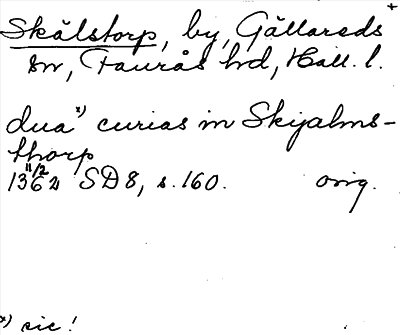 +
Skälstorp, by, Gällareds
sn, Faurås hd, Hall. l.
dua*) curias in Skijalms-
thorp
11/2
1362 SD8, s. 160. orig.
*) sic!